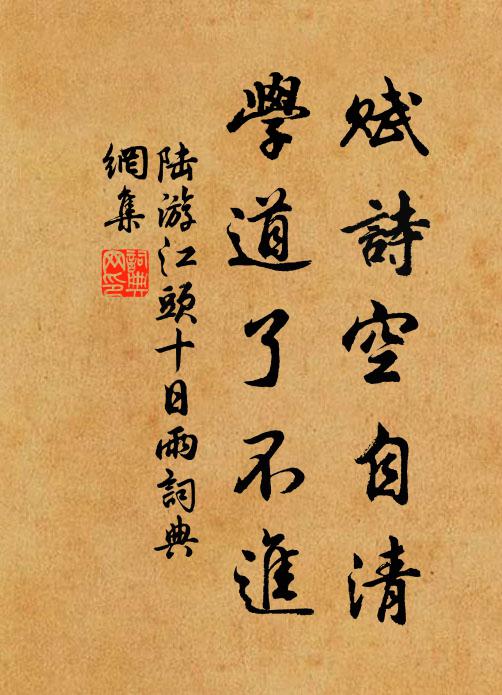 賦詩空自清
學道了不進
陸游江頭十日雨詞典
網集
詞典
网印